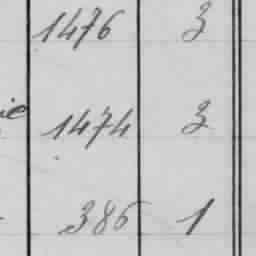 1476 3
1474 3
386 1